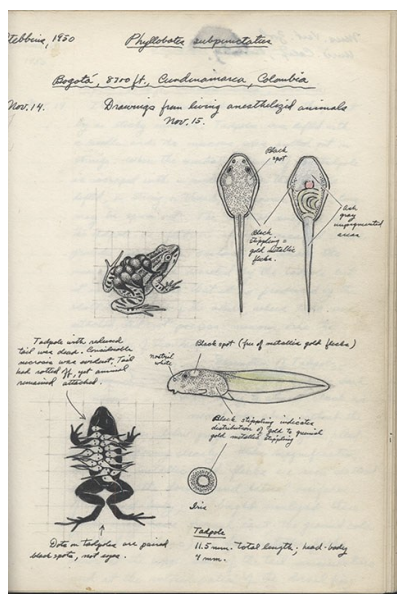 Stebbins, 1950
Phyllobates subpunctatus
Bogotá, 8700 ft, Cundinamarca, Colombia
Nov. 14.
Drawings from living anesthetized animals
Nov. 15.
Black
spot
Black
stippling =
gold metallic
flecks.
Ash
gray
unpigmented
areas
Tadpole with reduced
tail was dead. Considerable
necrosis was evident. Tail
had rotted off, yet animal
remained attached.
Black spot (free of metallic gold flecks)
nostril
white
Black stippling indicates
distribution of gold to
gold metallic stippling
Iris
Dots on tadpoles are paired
black spots, not eyes.
Tadpole
11.5 mm. total length; head-body
4 mm.